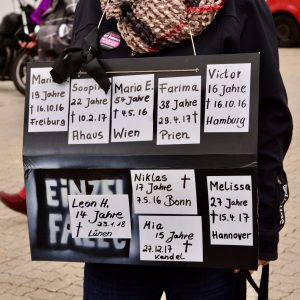 Maria
19 Jahre
† 16.10.16
Freiburg
Soopi
22 Jahre
† 10.2.17
Ahaus
Maria E.
54 Jahre
† 4.5.16
Wien
Farima
38 Jahre
29.4.17 †
Prien
Victor
16 Jahre
† 16.10.16
Hamburg
EiNZEL
FÄLLE
Leon H.
14 Jahre
† 23.1.18
Lünen
Niklas
17 Jahre †
7.5.16 Bonn
Mia
15 Jahre
27.12.17 †
Kandel
Melissa
27 Jahre
† 15.4.17
Hannover